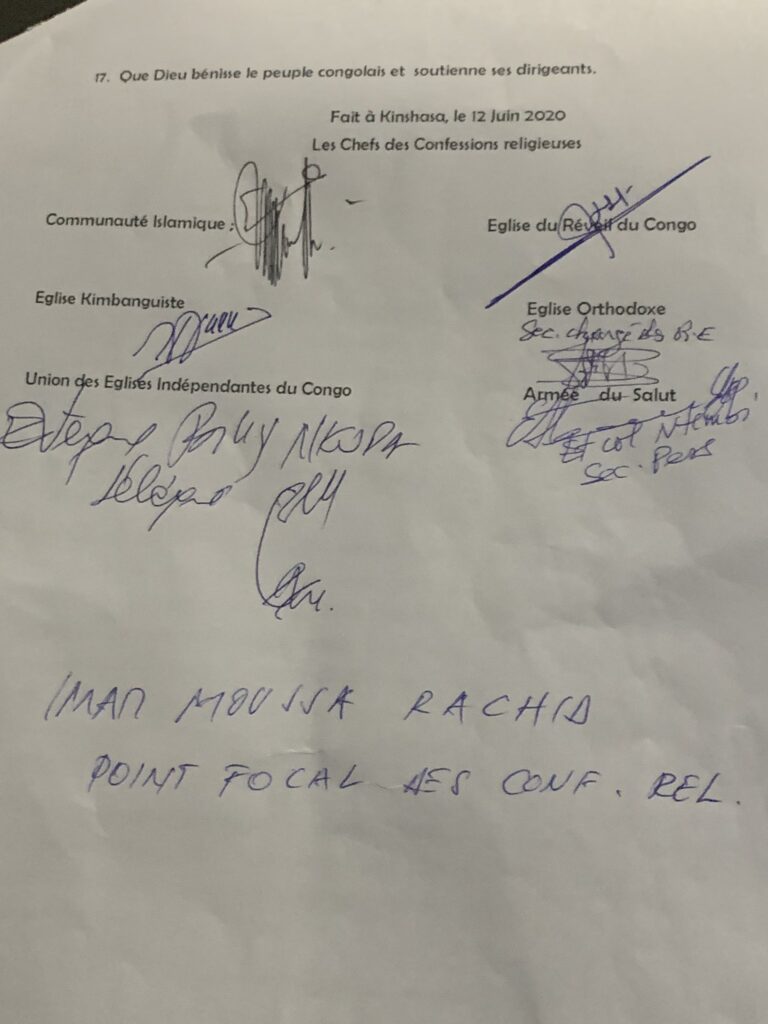 17. Que Dieu bénisse le peuple congolais et soutienne ses dirigeants.
Fait à Kinshasa, le 12 Juin 2020
Les Chefs des Confessions religieuses
Communauté Islamique :
Eglise du Réveil du Congo
Eglise Kimbanguiste
Eglise Orthodoxe
Sec. chargé des R.E
Union des Eglises Indépendantes du Congo
Armée du Salut
Lt col Ntembi
Sec. Pers
IMAM MOUSSA RACHID
POINT FOCAL DES CONF. REL.